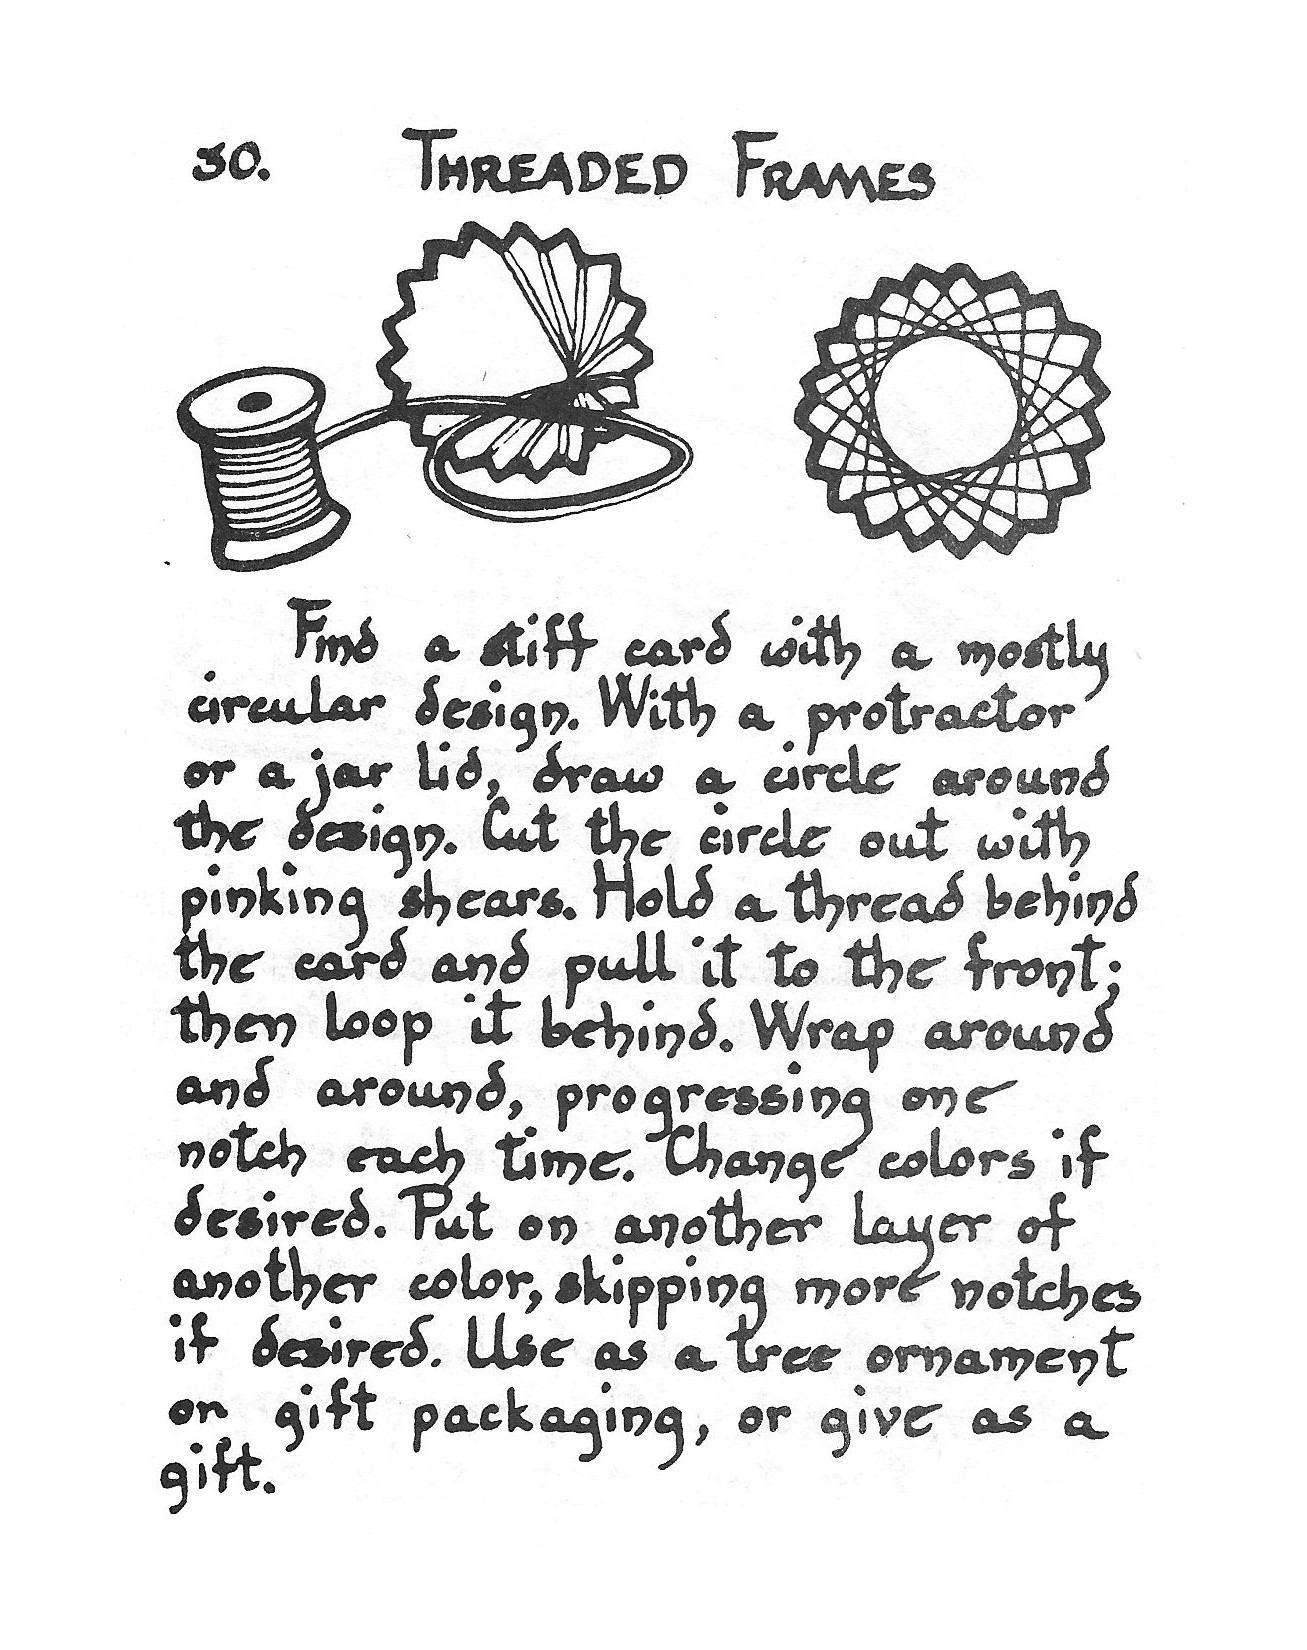 30. THREADED FRAMES
Find a stiff card with a mostly
circular design. With a protractor
or a jar lid, draw a circle around
the design. Cut the circle out with
pinking shears. Hold a thread behind
the card and pull it to the front;
then loop it behind. Wrap around
and around, progressing one
notch each time. Change colors if
desired. Put on another layer of
another color, skipping more notches
if desired. Use as a tree ornament
on gift packaging, or give as a
gift.